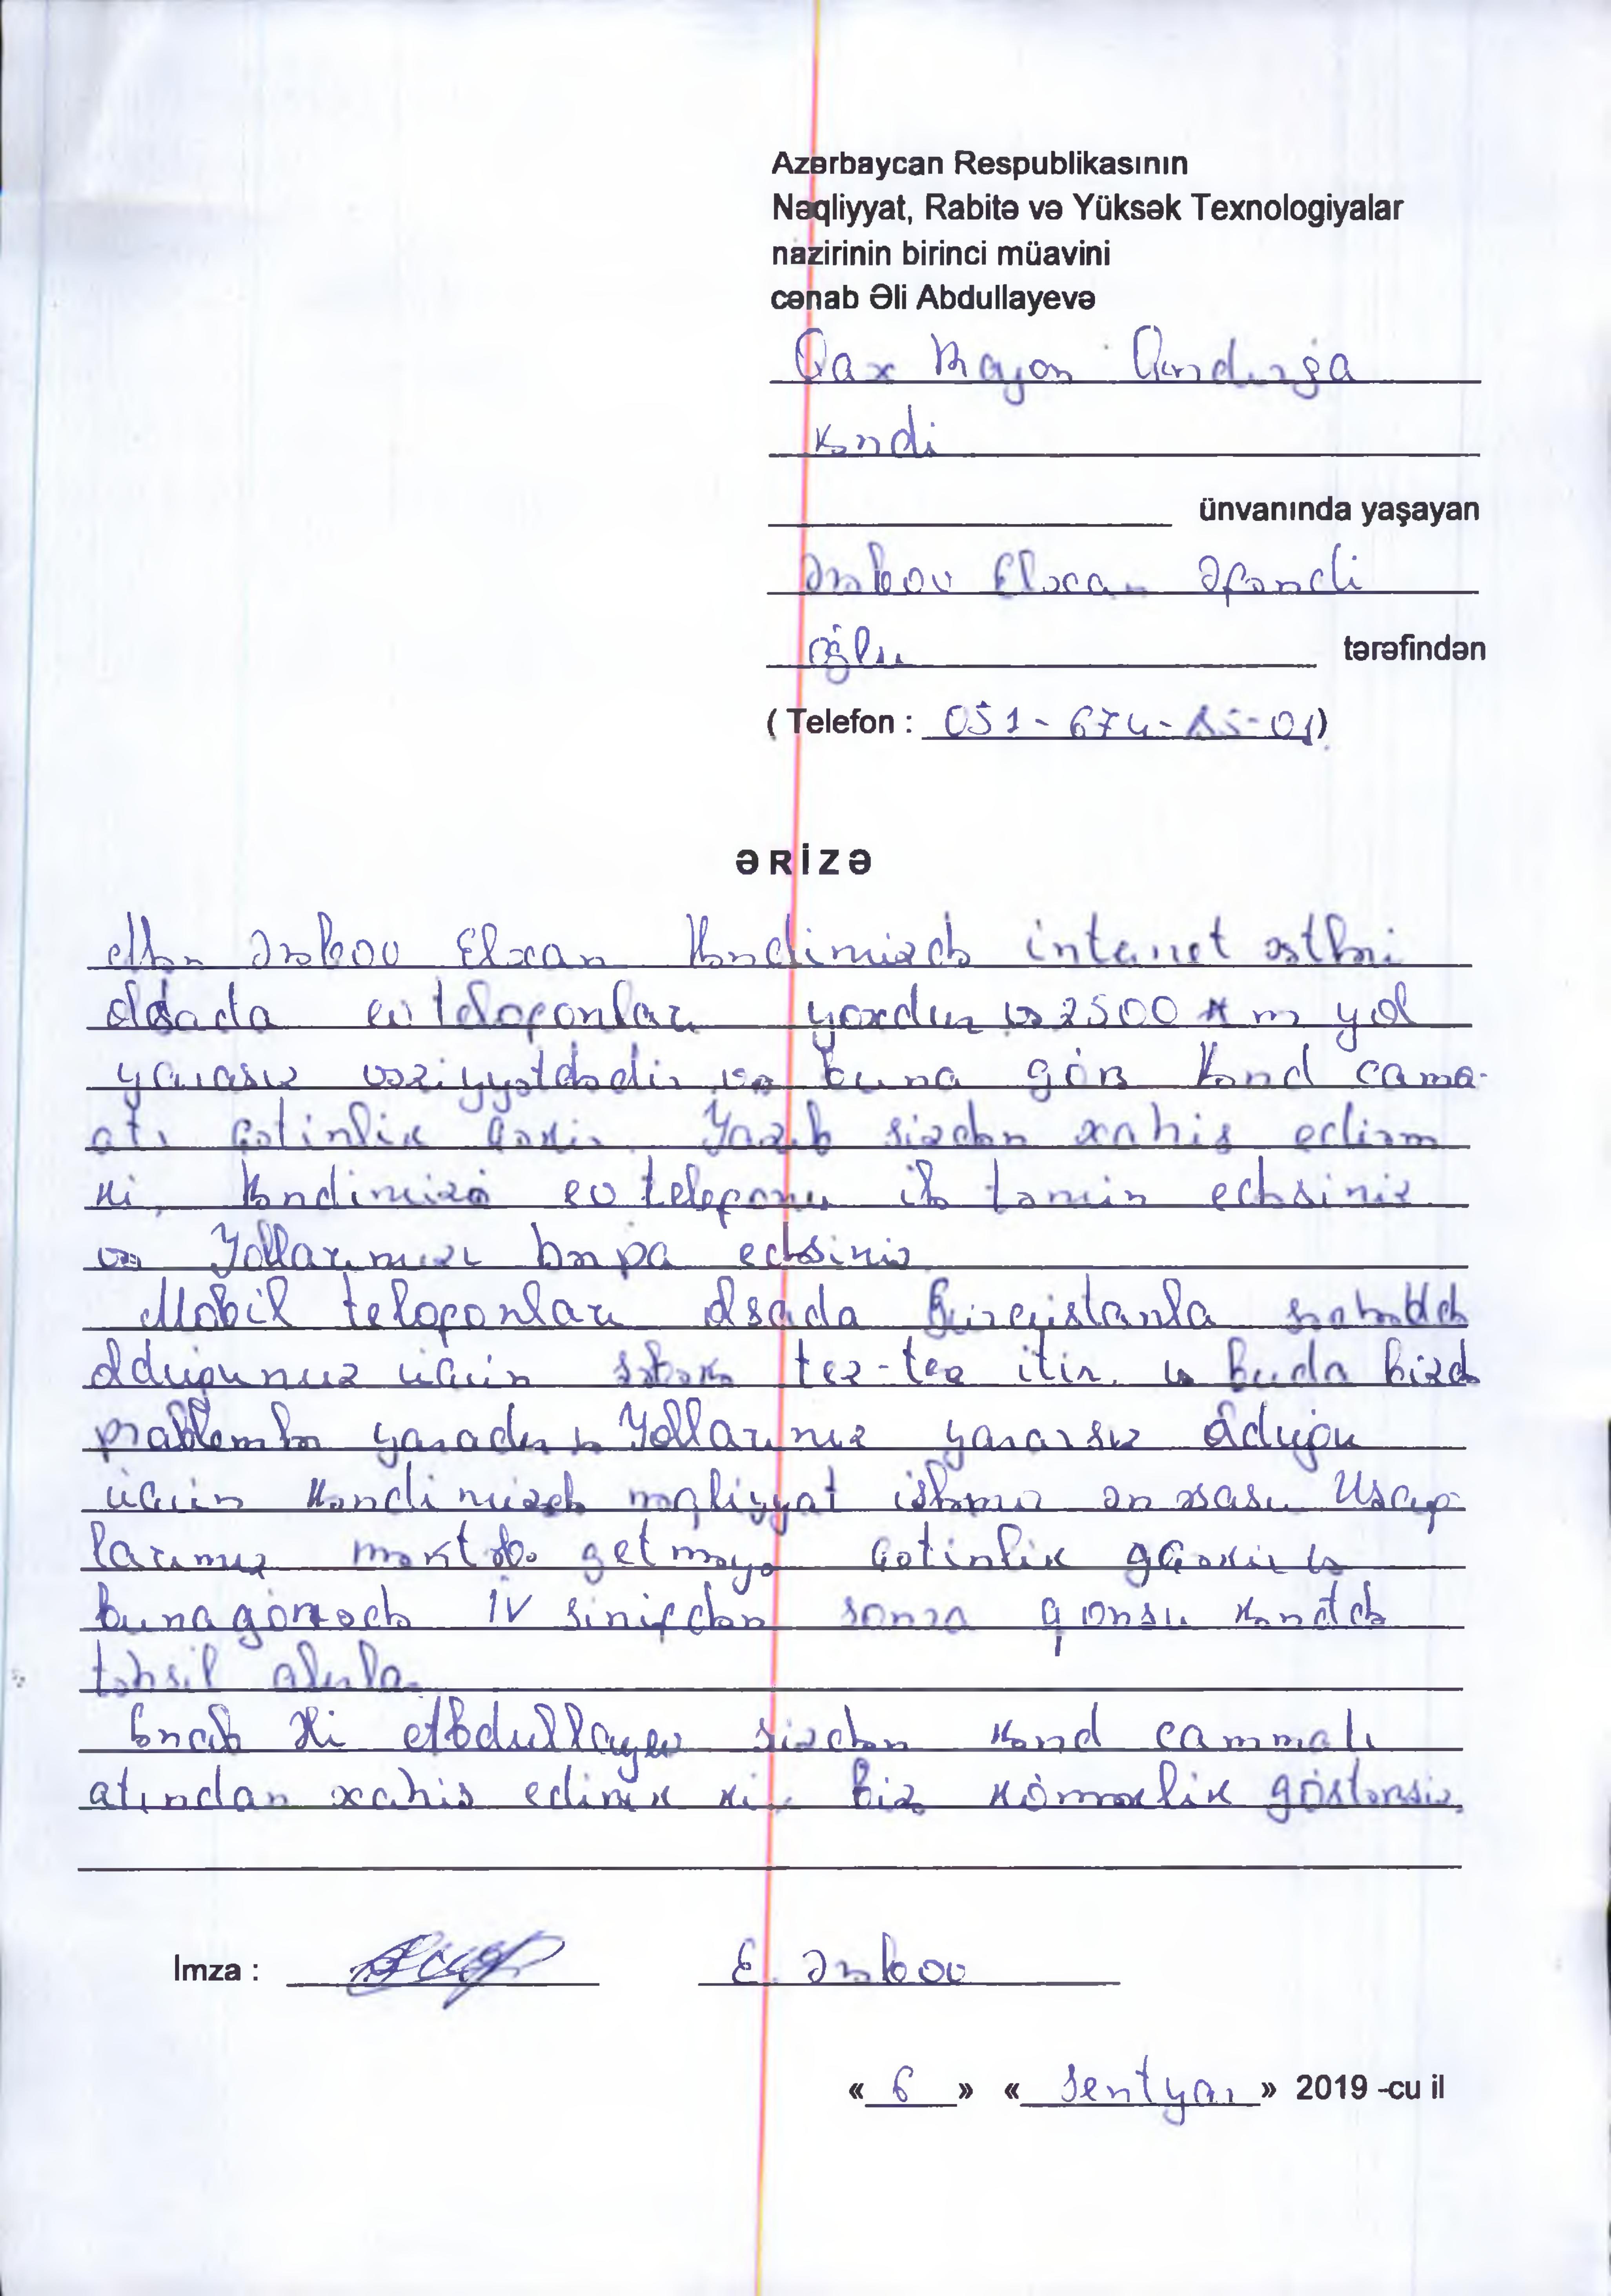 Azərbaycan Respublikasının
Nəqliyyat, Rabitə və Yüksək Texnologiyalar
nazirinin birinci müavini
cənab Əli Abdullayevə
Qax Rayon Qındırğa
kəndi
ünvanında yaşayan
Elxan Əfəndi
oğlu tərəfindən
( Telefon : 051-674- -01)
ƏRİZƏ
Mən Elxan Kəndimizdə internet xətləri
olsada ev telefonları yoxdur və 2500 km yol
yarasız vəziyyətdədir və buna görə kənd cama-
atı çətinlik çəkir. Yazıb sizdən xahiş edirəm
ki, kəndimizə ev telefonu ilə təmin edəsiniz
və Yollarımızı bərpa edəsiniz
Mobil telefonları olsada Gürcüstanla sərhəddə
olduğumuz üçün şəbəkə tez-tez itir və buda bizdə
problemlər yaradır və Yollarımız yararsız olduğu
üçün kəndimizdə nəqliyyat işləmir ən əsası Uşaq-
larımız məktəbə getməyə çətinlik çəkir və
bunagörədə IV sinifdən sonra qonşu kənddə
təhsil alırlar
Cənab Əli Abdullayev sizdən kənd cammatı
atından xahiş edirik ki, biz köməklik göstərəsiz.
Imza : E.
« 6 » « Sentyar » 2019 -cu il